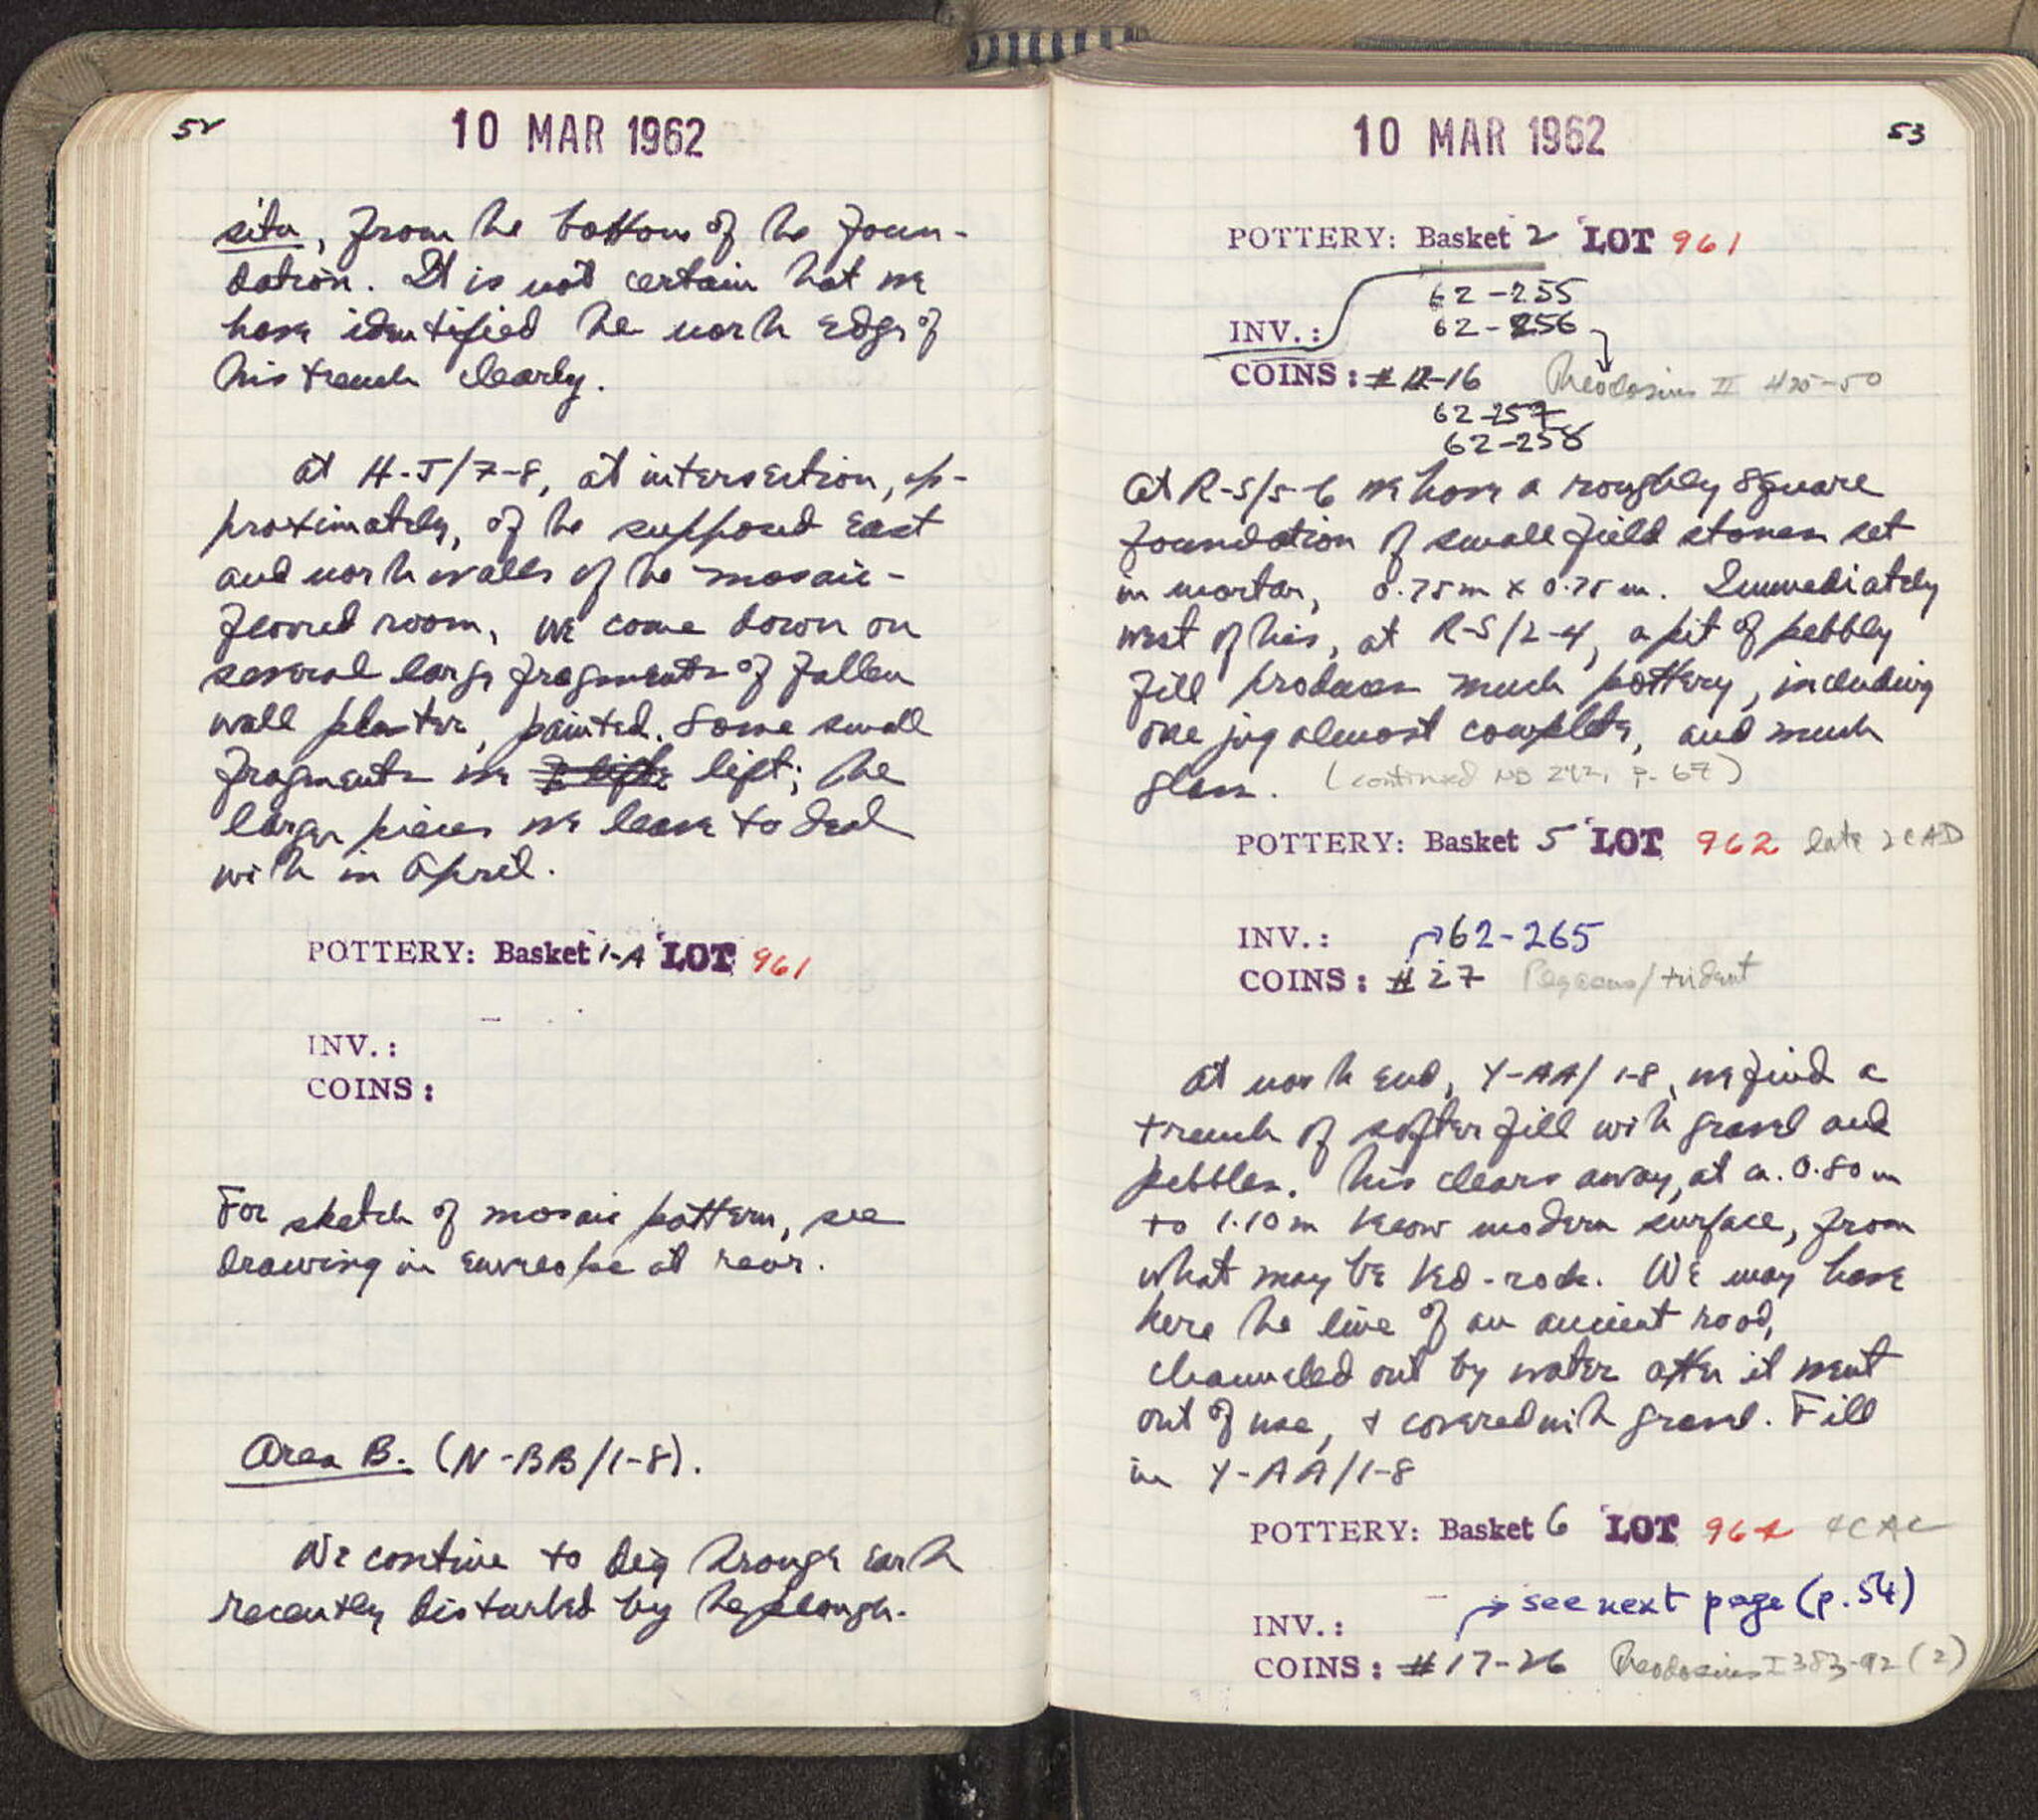 52
10 MAR 1962
situ, from the bottom of the foun-
dation. It is not certain that we
have identified the north edge of
this trench clearly.
At H-J/7-8, at intersection, ap-
proximately, of the supposed East
and north walls of the mosaic-
floored room, we come down on
several large fragments of fallen
wall plaster, painted. Some small
fragments we lift; the
larger pieces we leave to deal
with in April.
POTTERY: Basket 1-A LOT 961
INV.:
COINS:
For sketch of mosaic pattern, see
drawing in envelope at rear.
Area B. (N-BB/1-8).
We continue to dig through earth
recently disturbed by the plough.
10 MAR 1962
53
POTTERY: Basket 2 LOT 961
62-255
INV.: 62-256
COINS: #12-16 Theodosius II 425-50
62-257
62-258
At R-S/5-6 we have a roughly square
foundation of small field stones set
in mortar, 0.75m x 0.75m. Immediately
west of this, at R-S/2-4, a pit of pebbly
fill produces much pottery, including
one jug almost complete, and much
glass. (continued NB 242, p. 67)
POTTERY: Basket 5 LOT 962 late 2C AD
INV.: 62-265
COINS: #27 Pegasus/trident
At north end, Y-AA/1-8, we find a
trench of softer fill with gravel and
pebbles. This clears away, at ca. 0.80m
to 1.10m below modern surface, from
what may be bed-rock. We may have
here the line of an ancient road,
channeled out by water after it went
out of use, & covered with gravel. Fill
in Y-AA/1-8
POTTERY: Basket 6 LOT
see next page (p. 54)
INV.:
COINS: #17-26 Theodosius I 383-92 (2)